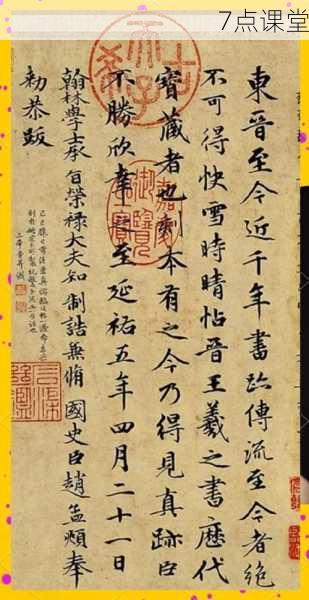 7点课堂
東晉至今近千年書跡傳流至今者絕
不可得快雪時晴帖晉王羲之書歷代
寶藏者也刻本有之今乃得見真跡臣
不勝欣幸之至延祐五年四月二十一日
翰林學士承旨榮祿大夫知制誥兼脩國史臣趙孟頫奉
勅恭跋
古希天子